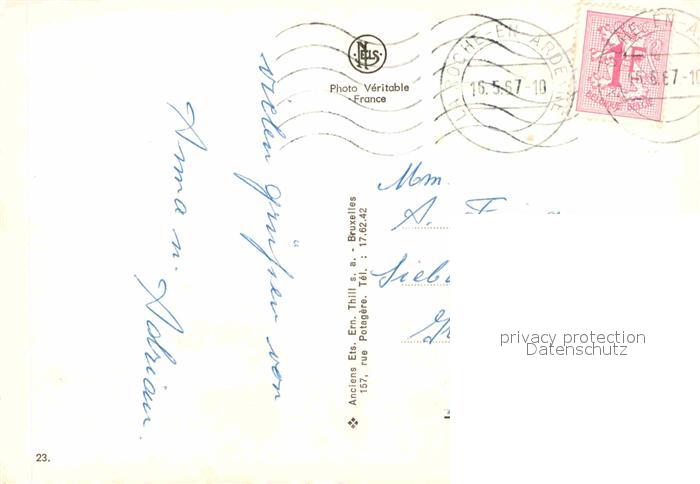 vielen grüssen von
Anna n. Adrian.
NELS
Photo Véritable
France
Anciens Ets. Ern. Thill s. a. - Bruxelles
157, rue Potagère. Tél. : 17.62.42
LA ROCHE-EN-ARDENNE
16.5.67-10
1F
BELGIQUE BELGIE
Mm.
A.
23.
privacy protection
Datenschutz